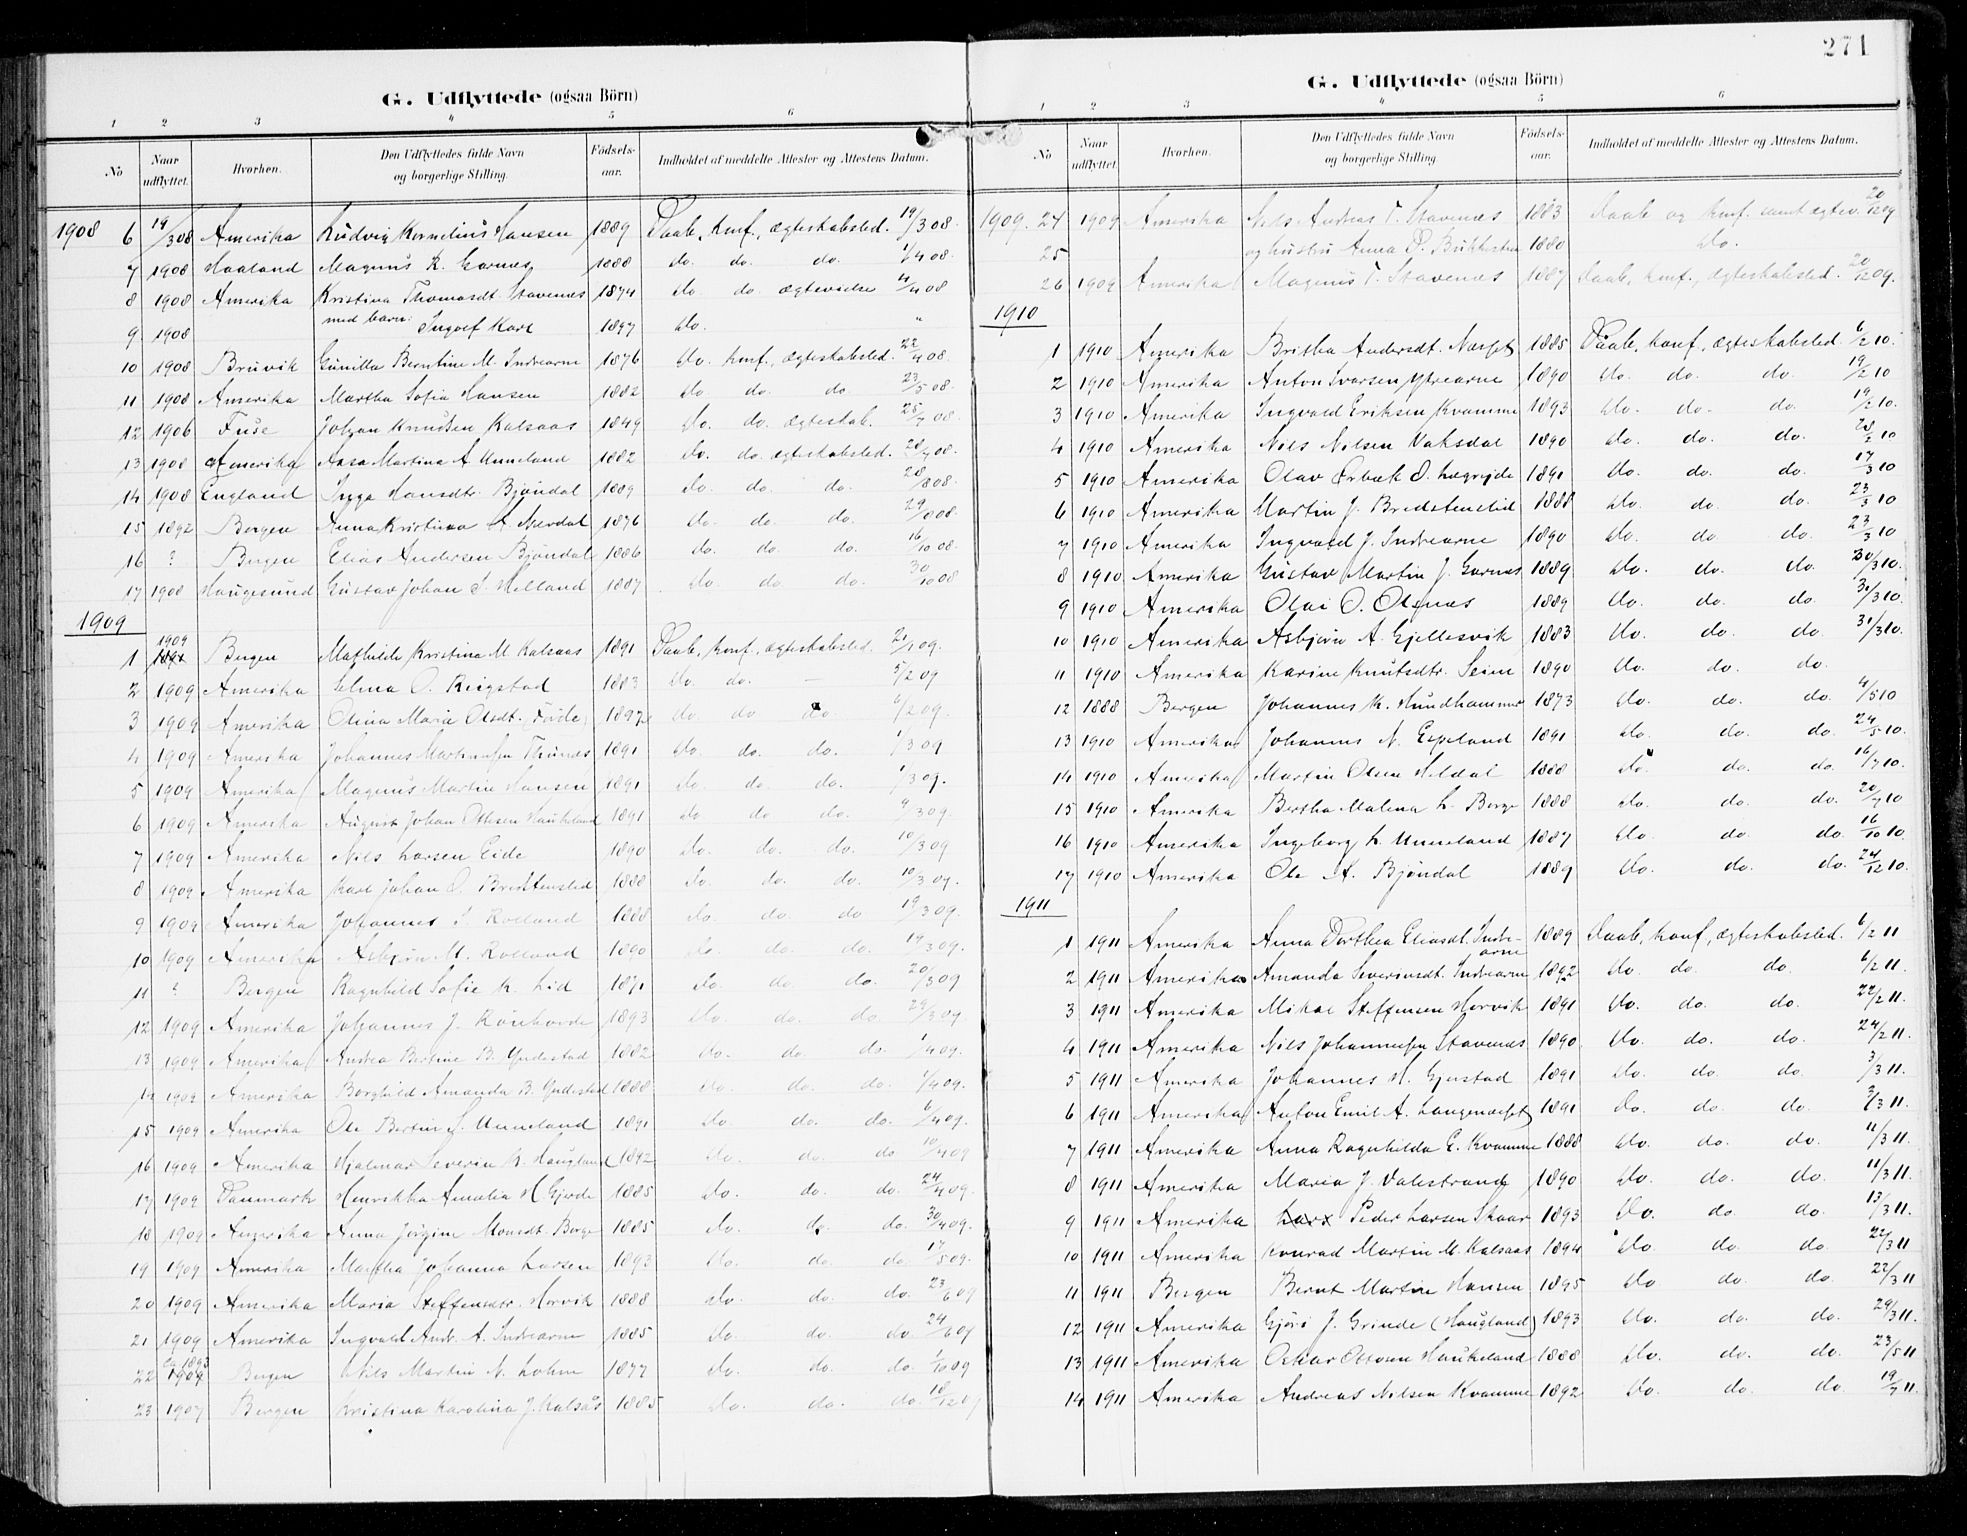 271
G. Udflyttede (ogsaa Börn)
1 2 3 4 5 6
No Naar udflyttet. Hvorhen. Den Udflyttedes fulde Navn og borgerlige Stilling. Födsels-aar. Indholdet af meddelte Attester og Attestens Datum.
1908 6 19/3 08 Amerika Ludvig Kornelius Hansen 1889 Daab, konf., ægteskabsled. 19/3 08.
7 1908 Haaland Magnus R. Garnæs 1888 do. do. do. 1/4 08.
8 1908 Amerika Kristina Thomasdt. Stavenæs 1874 do. do. ægtevielse 4/4 08
9 1908 med barn: Ingolf Karl 1897 do. "
10 1908 Bruvik Gunilla Berntine M. Indrearne 1876 do. konf., ægteskabsled. 22/4 08.
11 1908 Amerika Martha Sofia Hansen 1882 do do. do 23/5 08.
12 1906 Fuse Johan Knudsen Kalsaas 1849 do. do. ægteskab. 25/7 08.
13 1908 Amerika Aasa Martina A. Unneland 1882 do. do. ægteskabsled. 28/7 08.
14 1908 England Inga Hansdtr. Bjøndal 1889 do. do. do. 28/8 08.
15 1892 Bergen Anna Kristina A. Aserdal 1876 do. do. do. 29/8 08.
16 ? Bergen Elias Andersen Bjøndal 1886 do. do. do. 16/10 08.
17 1908 Haugesund Gustav Johan S. Helland 1887 do. do. do. 30/10 08
1909
1 1909 Bergen Mathilde Kristina M. Kalsaas 1891 Daab, konf., ægteskabsled. 21/1 09.
2 1909 Amerika Selma O. Reigstad 1883 do. do. — 5/2 09
3 1909 Amerika Olina Maria Olsdt. (Frøle) 1892 do. do do. 6/2 09.
4 1909 Amerika Johannes Martinussen Thunæs 1891 do. do. do. 1/3 09
5 1909 Amerika Magnus Martin Hansen 1891 do. do. do. 1/3 09.
6 1909 Amerika August Johan Ottesen Haukeland 1891 do do do. 9/3 09.
7 1909 Amerika Nils Larsen Eide 1890 do. do. do. 10/3 09
8 1909 Amerika Karl Johan O. Bredstensted 1888 do. do. do. 10/3 09.
9 1909 Amerika Johannes J. Rolland 1888 do. do. do 19/3 09.
10 1909 Amerika Asbjørn M. Rolland 1890 do. do. do. 19/3 09.
11 ? Bergen Ragnhild Sofie K. Lid 1871 do. do. do. 20/3 09
12 1909 Amerika Johannes J. Rønhovde 1893 do. do. do. 29/3 09.
13 1909 Amerika Andrea Bertine B. Yndestad 1882 do. do. do. 1/4 09.
14 1909 Amerika Borghild Amanda B. Yndestad 1888 do. do. do. 1/4 09.
15 1909 Amerika Ole Bertin S. Unneland 1891 do. do. do. 6/4 09.
16 1909 Amerika Hjalmar Severin K. Haugland 1892 do. do. do 10/4 09
17 1909 Danmark Henrikka Amalia H. Gjerde 1885 do. do. do. 24/4 09.
18 1909 Amerika Anna Jørgine Monsdt. Borge 1885 do. do. do. 30/4 09.
19 1909 Amerika Martha Johanna Larsen 1893 do. do. do. 17/5 09.
20 1909 Amerika Maria Steffensdtr. Hervik 1888 do. do. do. 23/6 09
21 1909 Amerika Ingvald Andr. A. Indrearne 1885 do. do. do. 29/6 09
22 ca. 1893 1909 Bergen Nils Martin N. Lohne 1877 do. do. do. 1/10 09
23 1907 Bergen Kristina Karolina J. Kalsås 1885 do. do. do. 18/12 09
G. Udflyttede (ogsaa Börn)
1 2 3 4 5 6
No Naar udflyttet. Hvorhen. Den Udflyttedes fulde Navn og borgerlige Stilling. Födsels-aar. Indholdet af meddelte Attester og Attestens Datum.
1909. 24 1909 Amerika Nils Andreas T. Stavenæs 1883 Daab og konf. samt ægtev. 20/12 09
25 og hustru Anna P. Bukkesten 1880 do.
26 1909 Amerika Magnus T. Stavenæs 1887 Daab, konf., ægteskabsled. 20/12 09.
1910
1 1910 Amerika Britha Andersdt. Næset 1885 Daab, konf., ægteskabsled. 6/2 10.
2 1910 Amerika Anton Ivarsen Ytrearne 1890 do. do. do. 19/2 10
3 1910 Amerika Ingvald Eriksen Kvamme 1893 do. do. do. 19/2 10.
4 1910 Amerika Nils Nilsen Vaksdal 1890 do. do. do. 28/2 10
5 1910 Amerika Olav Orbæk O. Lægreide 1891 do. do. do. 17/3 10
6 1910 Amerika Martin J. Bredstensted 1888 do. do. do. 23/3 10
7 1910 Amerika Ingvald J. Indrearne 1890 do. do. do. 23/3 10
8 1910 Amerika Gustav Martin J. Garnæs 1889 do. do. do. 30/3 10.
9 1910 Amerika Olai O. Olsnæs 1889 do. do. do. 31/3 10.
10 1910 Amerika Asbjørn A. Gjellesvik 1883 do. do. do. 31/3 10.
11 1910 Amerika Karine Knutsdtr. Seim 1890 do. do. do.
12 1888 Bergen Johannes K. Hundhammer 1873 do. do. do. 4/5 10
13 1910 Amerika Johannes N. Espeland 1891 do. do. do. 24/5 10.
14 1910 Amerika Martin Olsen Heldal 1888 do. do. do. 16/7 10.
15 1910 Amerika Bertha Malena L. Borge 1888 do. do. do. 20/7 10
16 1910 Amerika Ingeborg L. Unneland 1887 do. do. do. 16/10 10.
17 1910 Amerika Ole A. Bjøndal 1889 do. do. do. 24/12 10.
1911
1 1911 Amerika Anna Dorthea Eliasdt. Indre-arne 1889 Daab, konf., ægteskabsled. 6/2 11
2 1911 Amerika Amanda Severinsdt. Indrearne 1892 do. do. do. 6/2 11.
3 1911 Amerika Mikal Steffensen Hervik 1891 do. do. do. 22/2 11.
4 1911 Amerika Nils Johannessen Stavenæs 1890 do. do. do. 24/2 11.
5 1911 Amerika Johannes H. Gjerstad 1891 do. do. do. 3/3 11.
6 1911 Amerika Anton Emil A. Langenæset 1891 do. do. do. 3/3 11.
7 1911 Amerika Anna Ragnhilda E. Kvamme 1888 do. do. do. 11/3 11.
8 1911 Amerika Maria J. Valestrand 1890 do. do. do. 11/3 11.
9 1911 Amerika Lars Peder Larsen Skaar 1893 do. do. do. 13/3 11.
10 1911 Amerika Konrad Martin M. Kalsaas 1894 do. do. do. 22/3 11
11 1911 Bergen Bernt Martin Hansen 1895 do do. do. 22/3 11
12 1911 Amerika Gjøri J. Grinde (Haugland) 1893 do. do. do. 29/3 11.
13 1911 Amerika Oskar Ottosen Haukeland 1888 do. do. do. 23/5 11
14 1911 Amerika Andreas Nilsen Kvamme 1892 do. do. do. 19/7 11.